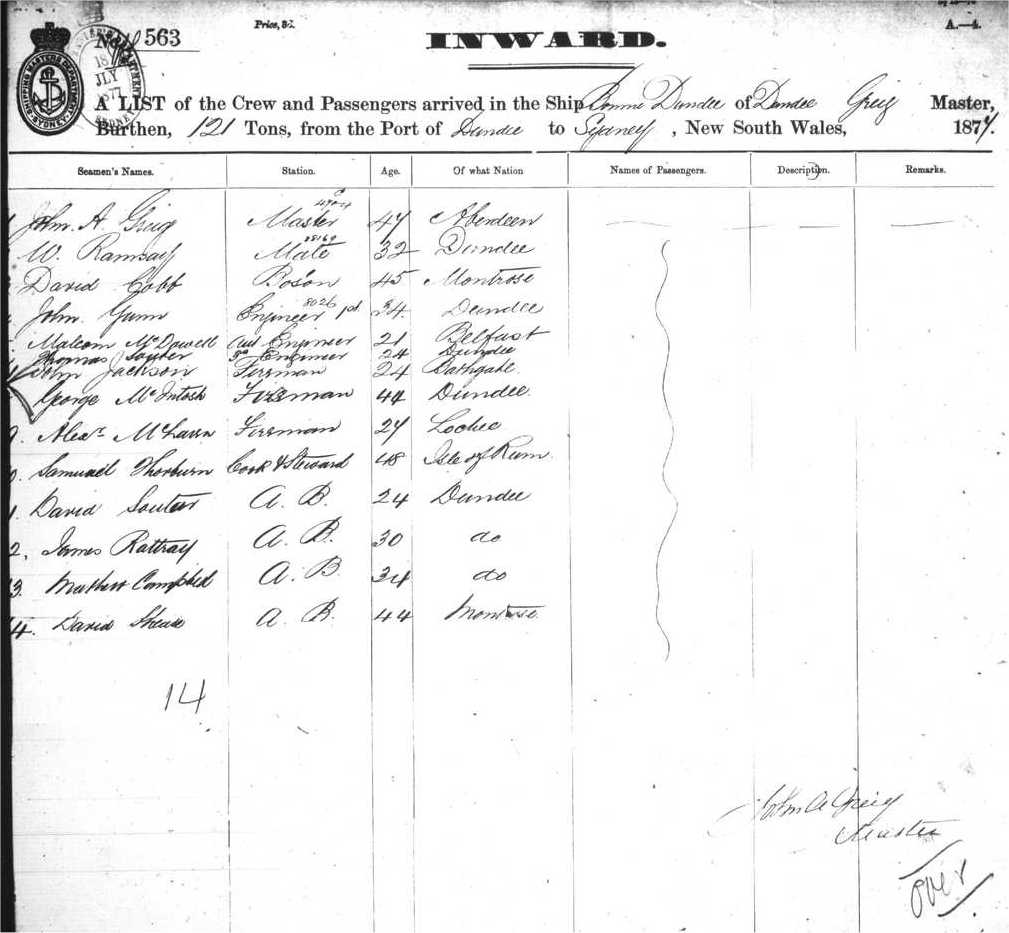 Price, 3d.
A.—4.
No 563
INWARD.
SHIPPING MASTERS DEPARTMENT SYDNEY
JLY
1877
SYDNEY
A LIST of the Crew and Passengers arrived in the Ship Bonnie Dundee of Dundee Greig Master,
Burthen, 121 Tons, from the Port of Dundee to Sydney, New South Wales, 1877.
Seamen's Names. Station. Age. Of what Nation Names of Passengers. Description. Remarks.
John A. Greig Master 47 Aberdeen
W. Ramsay Mate 32 Dundee
David Cobb Bo'son 45 Montrose
8026
John Gunn Engineer 1st 34 Dundee
Malcom McDowell Engineer 21 Belfast
Thomas Souter Engineer 24 Dundee
John Jackson Fireman 24 Bathgate
George McIntosh Fireman 44 Dundee.
9. Alexr McLaren Fireman 27 Lochee
0. Samuel Thorburn Cook & Steward 48 Isle of Rum
1. David Souter A. B. 24 Dundee
2. James Rattray A. B. 30 do
3. Campbell A. B. 34 do
4. David A. B. 44 Montrose
14
John A Greig
Master
over